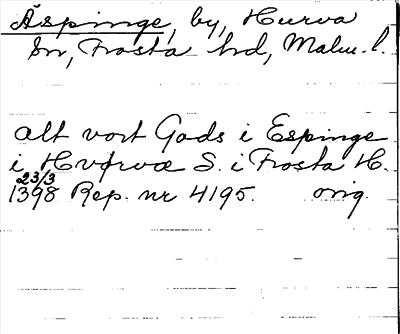 Äspinge, by, Hurva
Sn, Frosta hd, Malm. l.
alt vort Gods i Espinge
i Hvørvæ S. i Frosta H.
23/3
1398 Rep. nr 4195. orig.